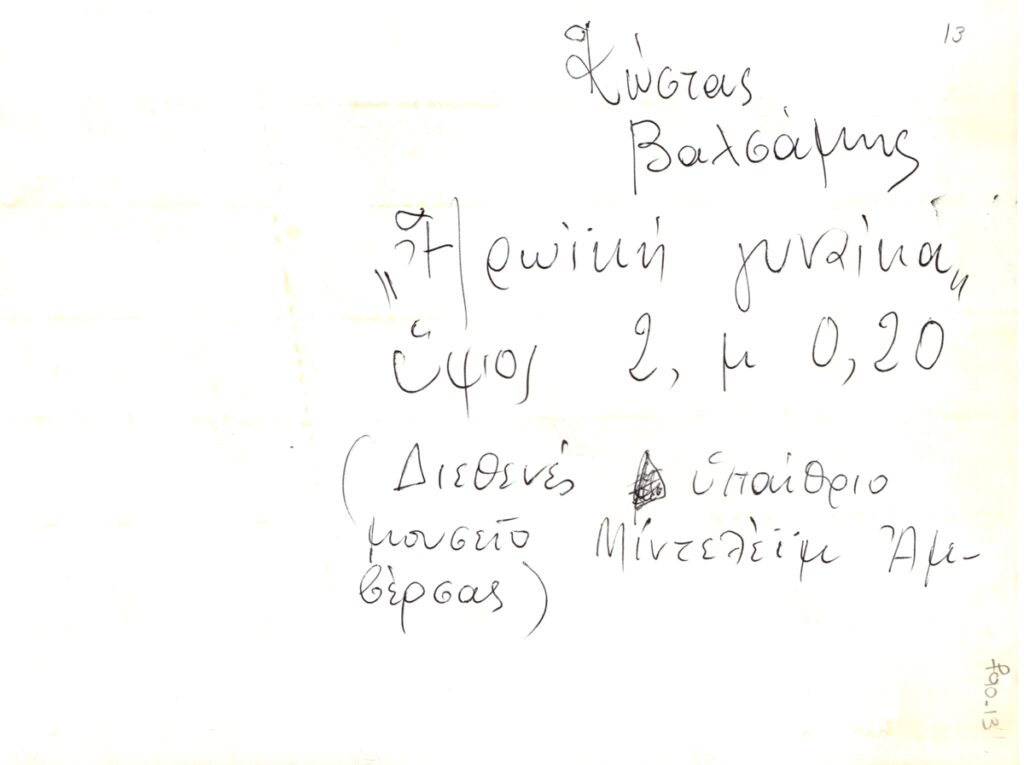 13
Κώστας
Βαλσάμης
„Ἡρωϊκή γυναίκα„
ὕψος 2, μ 0,20
(Διεθενές ὑπαίθριο
μουσεῖο Μίντελέϊμ Ἀμ-
βέρσας)
φ90-13